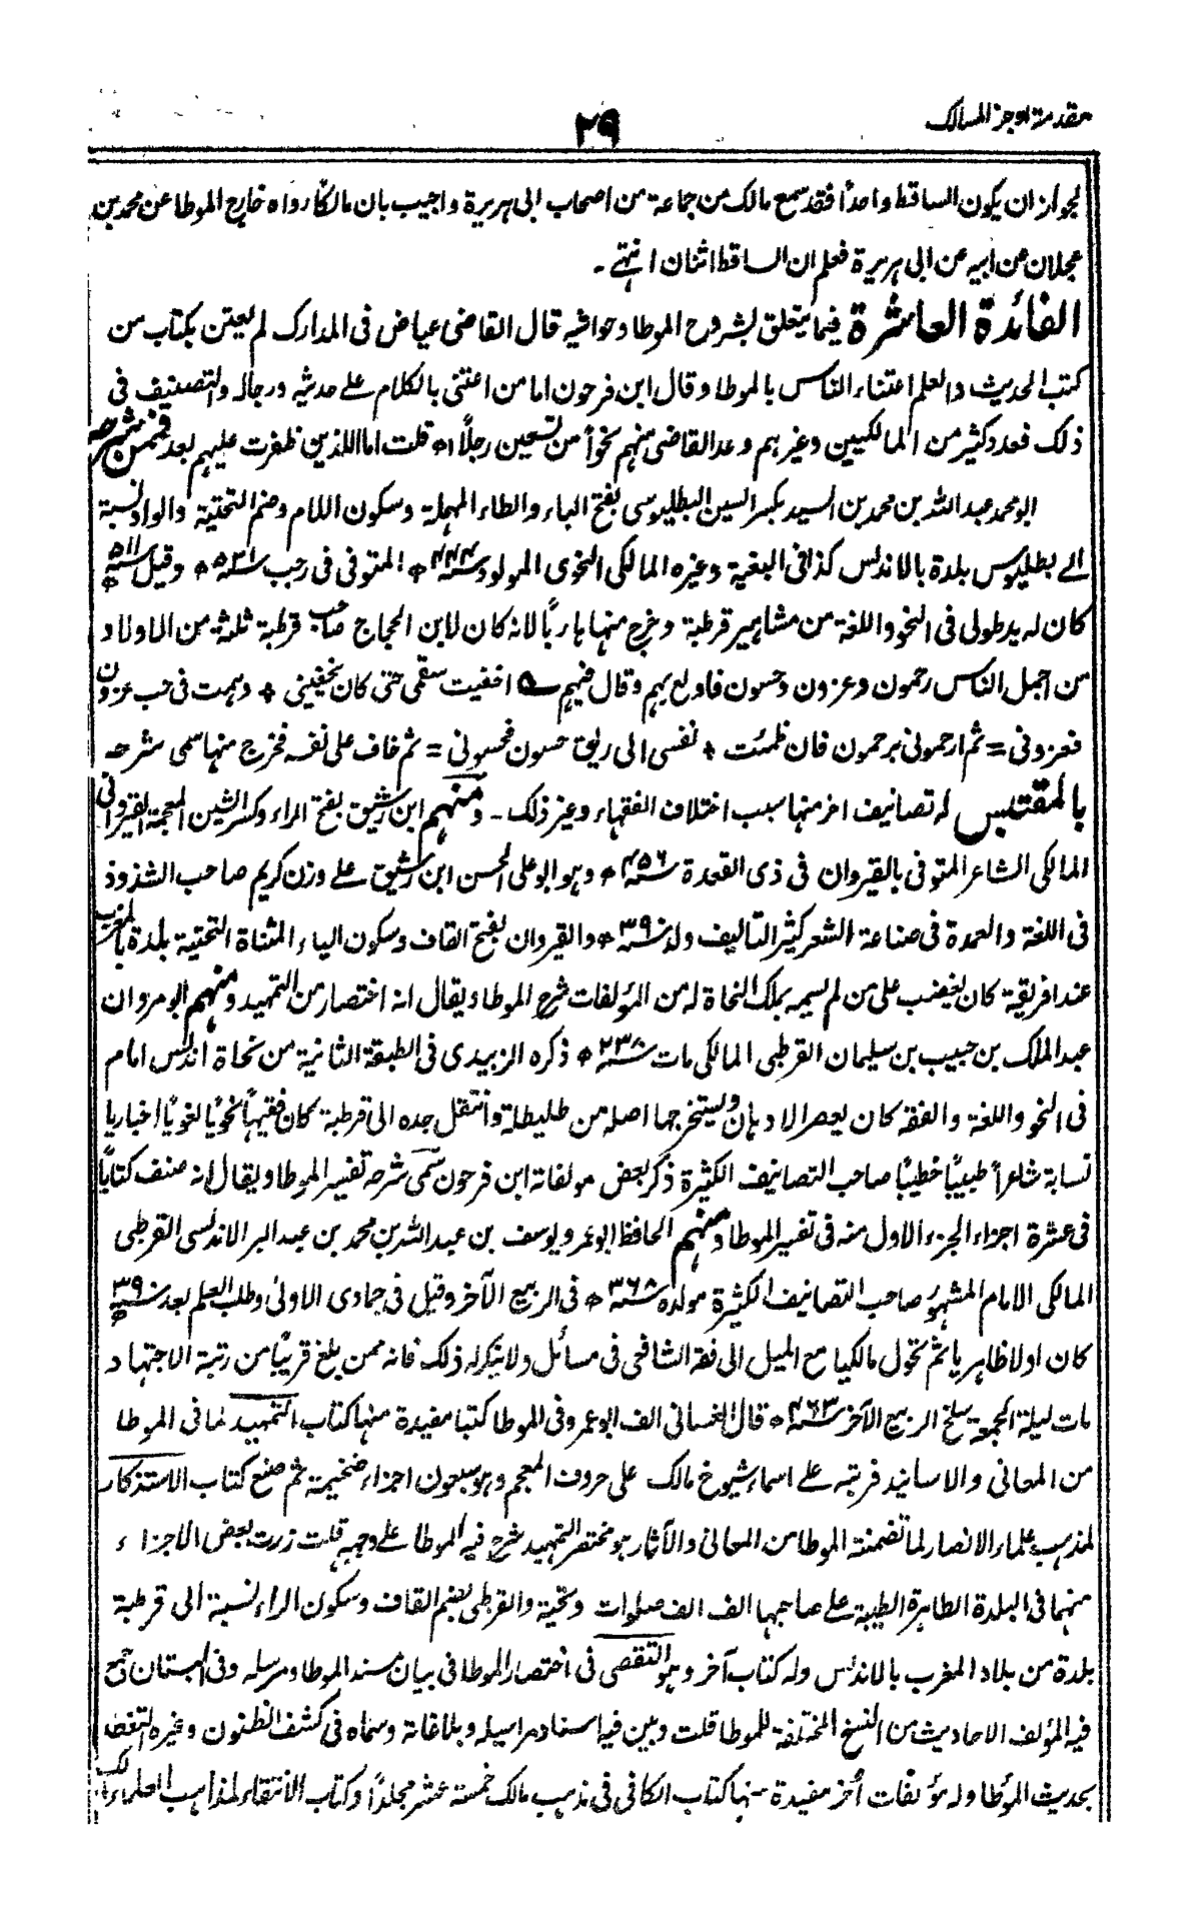 مقدمة اوجز المسالك
٢٩
لجواز ان يكون الساقط واحداً فقد سمع مالك من جماعة من اصحاب ابى هريرة واجيب بان مالكا رواه خارج الموطا عن محمد بن
عجلان عن ابيه عن ابى هريرة فعلم ان الساقط اثنان انتهے ۔
الفائدة العاشرة فيما يتعلق بشروح الموطا وحواشيه قال القاضى عياض فى المدارك لم يعتن بكتاب من
كتب الحديث والعلم اعتناء الناس بالموطا وقال ابن فرحون اما من اعتنى بالكلام على حديثه ورجاله والتصنيف فى
ذلك فعدد كثير من المالكيين وغيرهم وعد القاضى منهم نحواً من تسعين رجلاً اه قلت اما الذين ظفرت عليهم بعد فممن شرحه
ابو محمد عبد الله بن محمد بن السيد بكسر السين البطليوسى بفتح الباء والطاء المهملة وسكون اللام وضم التحتية والواو نسبة
الے بطليوس بلدة بالاندلس كذا فى البغية وغيره المالكى النحوى المولود سنة ٤٤٤ه المتوفى فى رجب سنة ٥٣١ه وقيل سنة ٥١١ه
كان له يد طولى فى النحو واللغة من مشاهير قرطبة وخرج منها هارباً لانه كان لابن الحجاج صاحب قرطبة ثلثة من الماولاد
من اجمل الناس رحمون وعزون وحسون فاولع بهم وقال فيهم اخفيت سقمى حتى كان يخفينى + وهمت فى حب عزون
فعزونى = ثم ارحمونى برحمون فان ظمئت + نفسى الى ريق حسون فحسونى = ثم خاف على نفسه فخرج منها سمى شرحه
بالمقتبس له تصانيف اخر منها سبب اختلاف الفقهاء وغير ذلك ۔ ومنهم ابن رشيق بفتح الراء وكسر الشين المعجمة القيروانى
المالكى الشاعر المتوفى بالقيروان فى ذى القعدة سنة ٤٥٦ه وهو ابو على الحسن ابن رشيق علے وزن كريم صاحب الشذوذ
فى اللغة والعمدة فى صناعة الشعر كثير التاليف ولد سنة ٣٩٠ه والقيروان بفتح القاف وسكون الياء المثناة التحتية بلدة بالمغرب
عند افريقية كان يغضب على من لم يسمه بملك النحاة له من المؤلفات شرح الموطا ويقال انه اختصار من التمهيد ومنهم ابو مروان
عبد الملك بن حبيب بن سليمان القرطبى المالكى مات سنة ٢٣٨ه ذكره الزبيدى فى الطبقة الثانية من نحاة اندلس امام
فى النحو واللغة والفقه كان يعصر الادهان ويستخرجها اصله من طليطلة وانتقل جده الى قرطبة كان فقيهاً نحويًا لغويًا اخباريا
نسابة شاعراً طبيبًا خطيبًا صاحب التصانيف الكثيرة ذكر بعض مولفاته ابن فرحون سمى شرحه تفسير الموطا ويقال انه صنف كتاباً
فى عشرة اجزاء الجزء الاول منه فى تفسير الموطا ومنهم الحافظ ابو عمرو يوسف بن عبد الله بن محمد بن عبد البر الاندلسى القرطبى
المالكى الامام المشهور صاحب التصانيف الكثيرة مولده سنة ٣٦٨ه فى الربيع الآخر وقيل فى جمادى الاولى وطلب العلم بعد سنة ٣٩٠ه
كان اولا ظاهريا ثم تحول مالكيا مع الميل الى فقه الشافعى فى مسائل ولا ينكر له ذلك فانه ممن بلغ قريباً من رتبة الاجتهاد
مات ليلة الجمعة سلخ الربيع الآخر سنة ٤٦٣ه قال الغسانى الف ابو عمرو فى الموطا كتبا مفيدة منها كتاب التمهيد لما فى الموطا
من المعانى والاسانيد فرتبه علے اسماء شيوخ مالك على حروف المعجم وهو سبعون اجزاء ضخيمة ثم صنع كتاب الاستذكار
لمذهب علماء الانصار لما تضمنته الموطا من المعانى والآثار هو مختصر التمهيد شرح فيه الموطا علے وجهه قلت زرت بعض الاجزاء
منهما فى البلدة الطاهرة الطيبة على صاحبها الف الف صلوات وتحية والقرطبى بضم القاف وسكون الراء نسبة الى قرطبة
بلدة من بلاد المغرب بالاندلس وله كتاب آخر وهو التقصى فى اختصار الموطا فى بيان مسند الموطا ومرسله وفى البستان جمع
فيه المؤلف الاحاديث من النسخ المختلفة للموطا قلت وبين فيه اسناد مراسيله وبلاغاته وسماه فى كشف الظنون وغيره التقصى
بحديث الموطا وله مؤلفات أخر مفيدة منها كتاب الكافى فى مذهب مالك خمسة عشر مجلداً وكتاب الانتقاء لمذاهب العلماء مالك